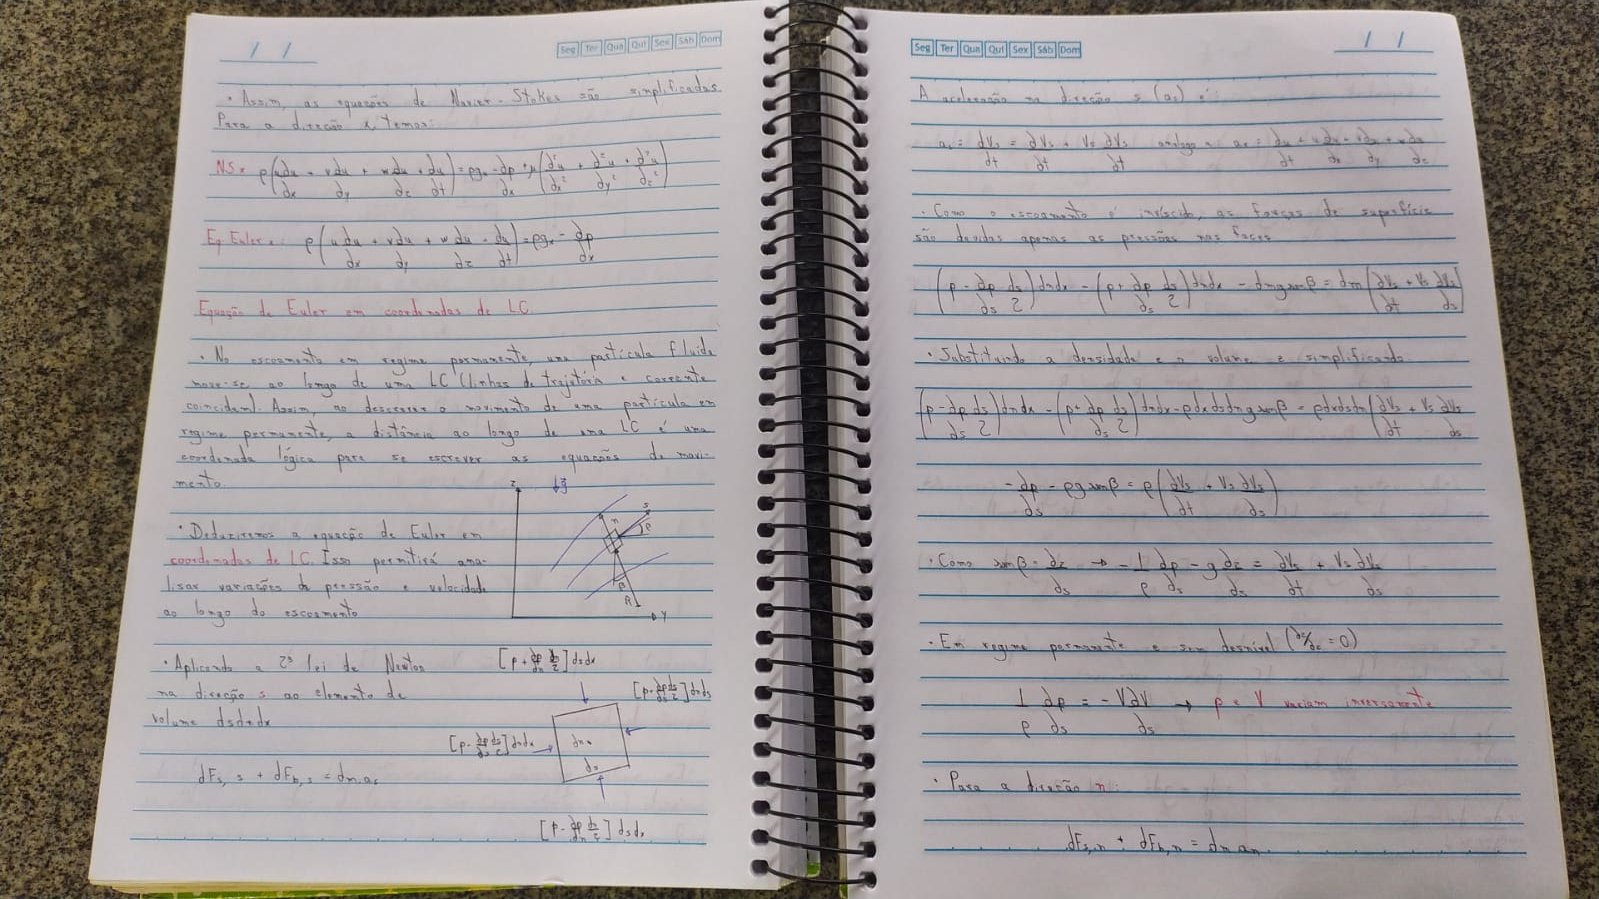 / /
Seg Ter Qua Qui Sex Sáb Dom
• Assim, as equações de Navier-Stokes são simplificadas.
Para a direção x, temos:
NSx ρ(u∂u/∂x + v∂u/∂y + w∂u/∂z + ∂u/∂t) = ρgx - ∂p/∂x + μ(∂²u/∂x² + ∂²u/∂y² + ∂²u/∂z²)
Eq Euler x: ρ(u∂u/∂x + v∂u/∂y + w∂u/∂z + ∂u/∂t) = ρgx - ∂p/∂x
Equação de Euler em coordenadas de LC
• No escoamento em regime permanente, uma partícula fluida
move-se ao longo de uma LC (linhas de trajetória e corrente
coincidem). Assim, ao descrever o movimento de uma partícula em
regime permanente, a distância ao longo de uma LC é uma
coordenada lógica para se escrever as equações do movi-
mento.
z g
n s β
β
R y
• Deduziremos a equação de Euler em
coordenadas de LC. Isso permitirá ana-
lisar variações de pressão e velocidade
ao longo do escoamento
• Aplicando a 2ª lei de Newton
na direção s ao elemento de
volume dsdndx
[p + ∂p/∂n dn/2] dsdx
[p + ∂p/∂s ds/2] dndx
[p - ∂p/∂s ds/2] dndx
dn
ds
dFs,s + dFb,s = dm.as
[p - ∂p/∂n dn/2] dsdx
Seg Ter Qua Qui Sex Sáb Dom
/ /
A aceleração na direção s (as) é:
as = dVs/dt = ∂Vs/∂t + Vs ∂Vs análogo a: ax = ∂u/∂t + u∂u/∂x + v∂u/∂y + w∂u/∂z
• Como o escoamento é invíscido, as forças de superfície
são devidas apenas as pressões nas faces
(p - ∂p/∂s ds/2) dndx - (p + ∂p/∂s ds/2) dndx - dmg senβ = dm(∂Vs/∂t + Vs ∂Vs/∂s)
• Substituindo a densidade e o volume e simplificando
(p - ∂p/∂s ds/2) dndx - (p + ∂p/∂s ds/2) dndx - ρdxdsdng senβ = ρdxdsdn(∂Vs/∂t + Vs ∂Vs/∂s)
-∂p/∂s - ρg senβ = ρ(∂Vs/∂t + Vs ∂Vs/∂s)
• Como senβ = ∂z/∂s → -1/ρ ∂p/∂s - g ∂z/∂s = ∂Vs/∂t + Vs ∂Vs/∂s
• Em regime permanente e sem desnível (∂z/∂s = 0)
1/ρ ∂p/∂s = -V∂V/∂s → p e V variam inversamente
• Para a direção n:
dFs,n + dFb,n = dm an